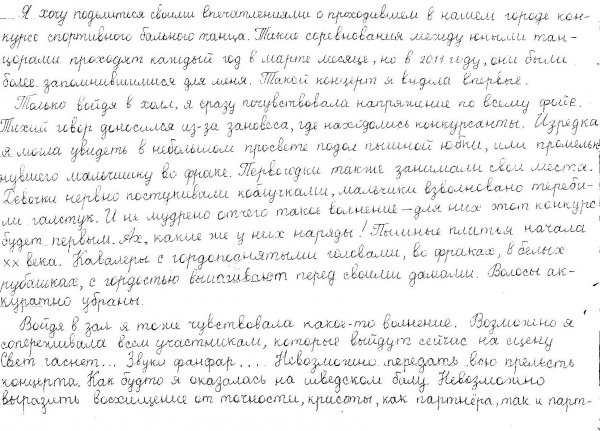 Я хочу поделиться своими впечатлениями о проходившем в нашем городе кон-
курсе спортивного бального танца. Такие соревнования между юными тан-
цорами проходят каждый год в марте месяце, но в 2011 году, они были
более запомнившимися для меня. Такой концерт я видила впервые.
Только войдя в холл, я сразу почувствовала напряжение по всему фойе.
Тихий говор доносился из-за зановеса, где находолись конкурсанты. Изредка
я могла увидеть в небольшом просвете подол пышной юбки, или промельк-
нувшего мальчишку во фраке. Первогодки также занимали свои места.
Девочки нервно постукивали каблучками, мальчики взволновано тереби-
ли галстук. И не мудрено отчего такое волнение – для них этот конкурс
будет первым. Ах, какие же у них наряды! Пышные платья начала
XX века. Кавалеры с гордоподнятыми головами, во фраках, в белых
рубашках, с гордостью вышагивают перед своими дамами. Волосы ак-
куратно убраны.
Войдя в зал я тоже чувствовала какое-то волнение. Возможно я
сопереживала всем участникам, которые выйдут сейчас на сцену
Свет гаснет... Звуки фанфар.... Невозможно передать всю прелесть
концерта. Как будто я оказалась на шведском балу. Невозможно
выразить восхищение от точности, красоты, как партнёра, так и парт-